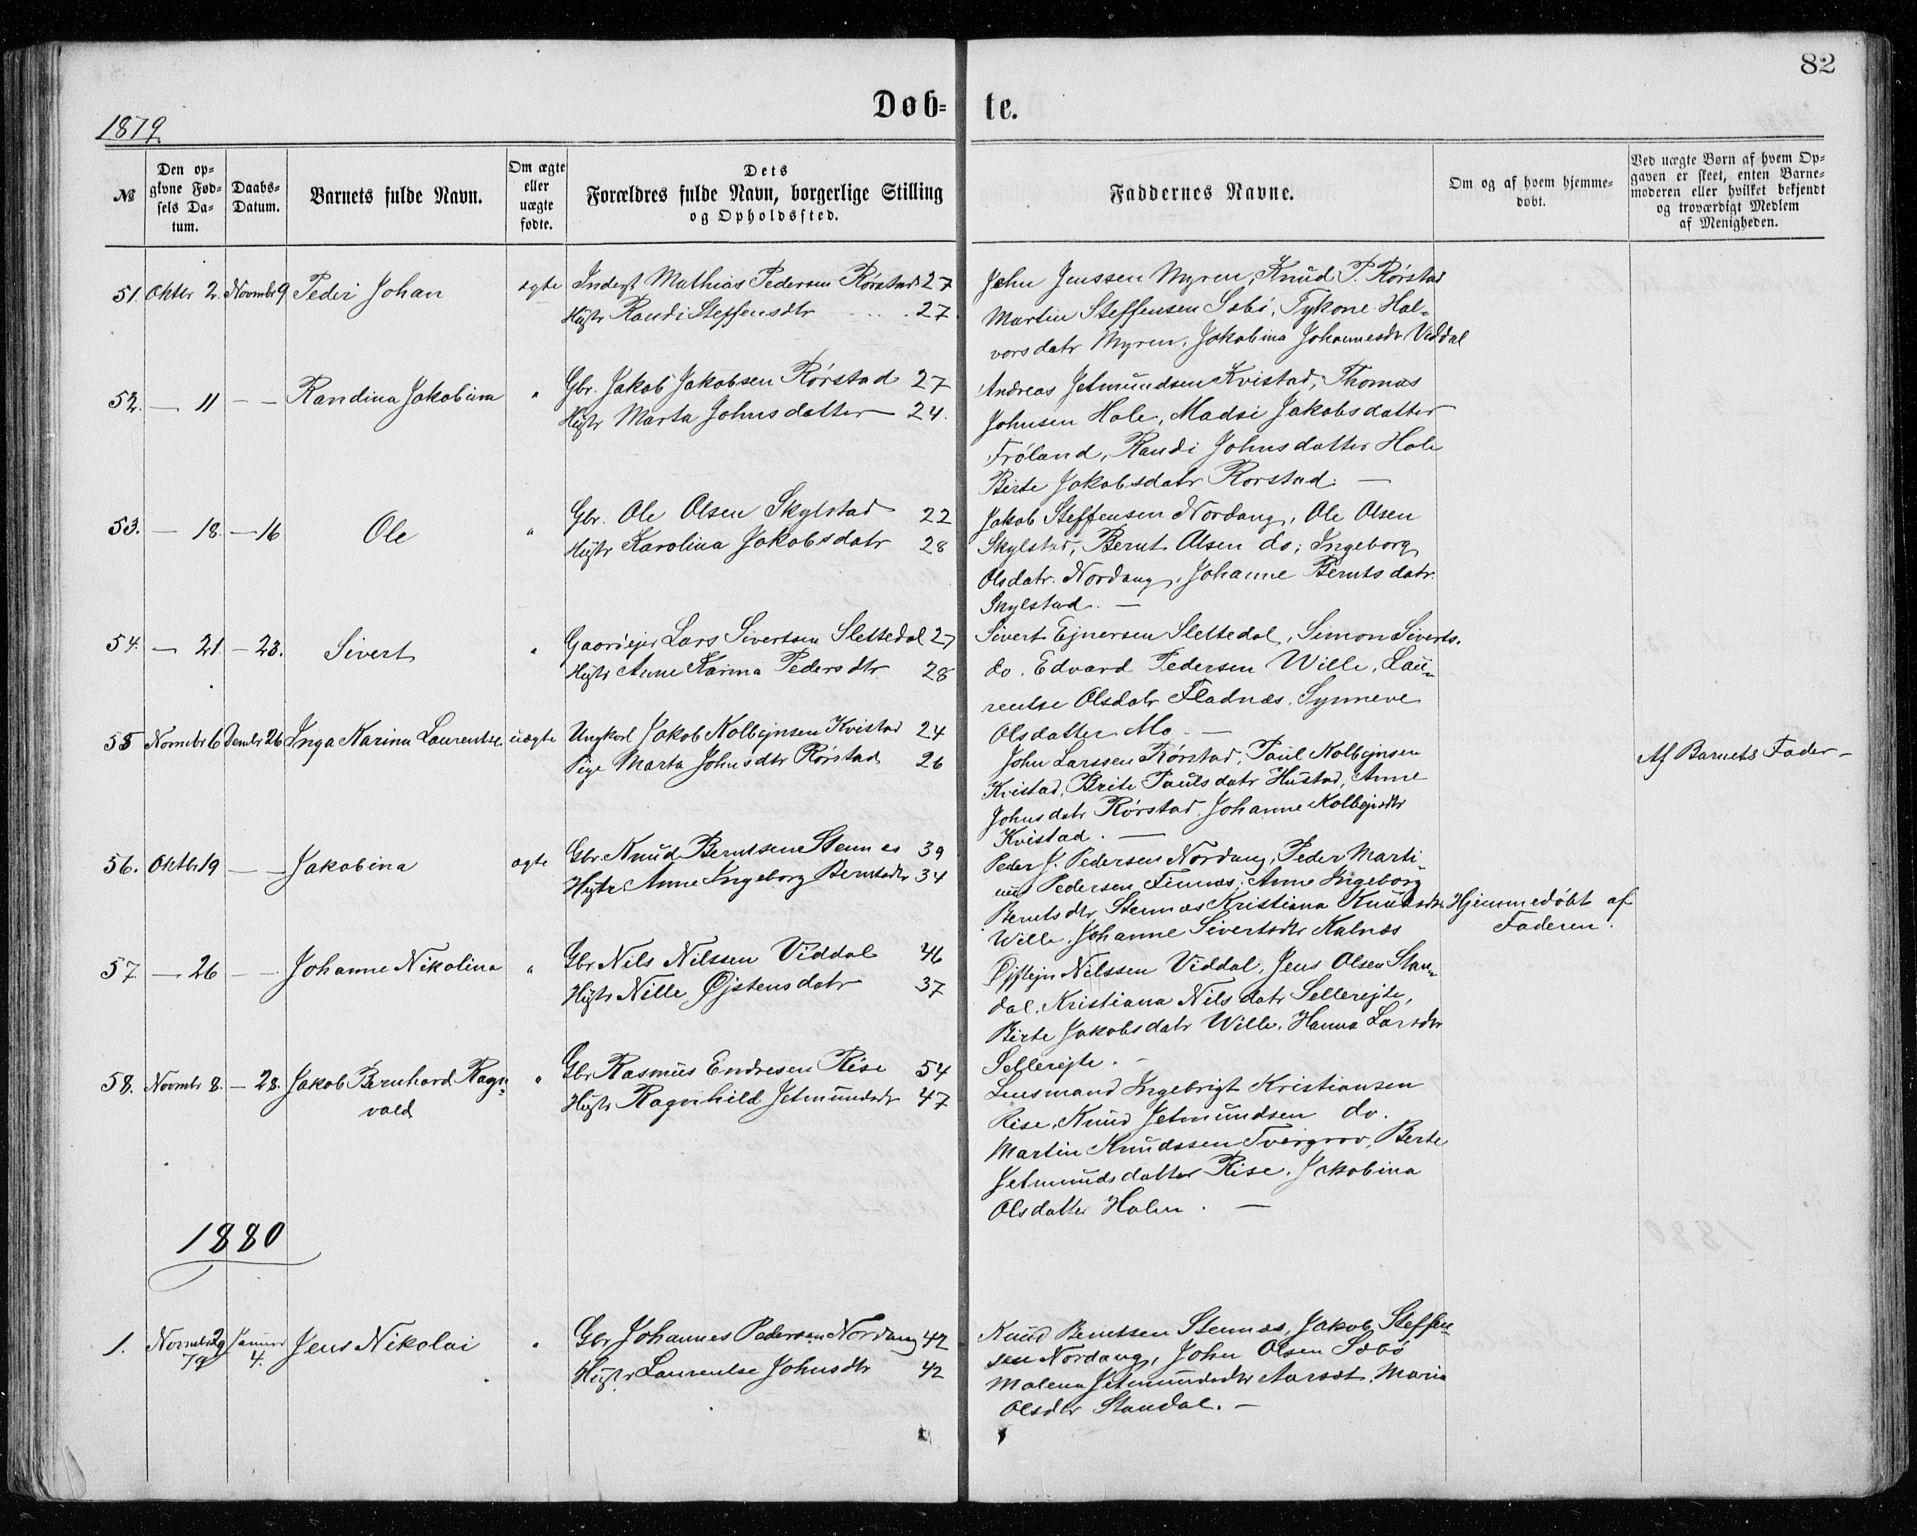 82
Døb- te.
1879
№
Den op-
givne Fød-
sels Da-
tum.
Daabs-
Datum.
Barnets fulde Navn.
Om ægte
eller
uægte
fødte.
Dets
Forældres fulde Navn, borgerlige Stilling
og Opholdssted.
Faddernes Navne.
Om og af hvem hjemme-
døbt.
Ved uægte Børn af hvem Op-
gaven er skeet, enten Barne-
moderen eller hvilket bekjendt
og troværdigt Medlem
af Menigheden.
51. Oktbr 2. Novmbr 9 Peder Johan ægte Inderst Mathias Pedersen Rørstad 27
Hustr Randi Steffensdtr 27
John Jenssen Myren, Knud P. Rørstad
Martin Steffensen Sæbø, Tykone Hal-
vorsdatr Myren, Jakobina Johannesdr Viddal
52. — 11 — — Randina Jakobina " Gbr. Jakob Jakobsen Rørstad 27
Hustr Marta Johnsdatter 24.
Andreas Jetmundsen Kvistad, Thomas
Johnsen Hole, Madsi Jakobsdatter
Frøland, Randi Johnsdatter Hole
Birte Jakobsdatr Rørstad. —
53. — 18. — 16 Ole " Gbr. Ole Olsen Skylstad 22
Hustr Karolina Jakobsdatr 28
Jakob Steffensen Nordang, Ole Olsen
Skylstad, Bernt Olsen do; Ingeborg
Olsdatr. Nordang, Johanne Berntsdatr.
Skylstad. —
54. — 21 — 23. Sivert " Gaardejer Lars Sivertsen Slettedal 27
Hustr Anne Karina Pedersdtr 28
Sivert Ejnersen Slettedal, Simon Siverts.
do. Edvard Pedersen Wille, Lau-
rentse Olsdatr Fladnæs, Synneve
Olsdatter Mo. —
55 Novmbr 6 Dembr 26 Inga Karina Laurentse uægte Ungkarl Jakob Kolbejnsen Kvistad 24
Pige Marta Johnsdtr Rørstad 26
John Larssen Rørstad, Paul Kolbejnsen
Kvistad, Brite Paulsdatr Hustad, Anne
Johnsdatr Rørstad, Johanne Kolbejnsdtr
Kvistad. —
Af Barnets Fader —
56. Oktbr 19 — — Jakobina ægte Gbr. Knud Berntsen Stennes 39
Hustr Anne Ingeborg Berntsdtr 34
Peder J. Pedersen Nordang, Peder Marti-
nus Pedersen Finnæs, Anne Ingeborg
Berntsdtr Stennæs Kristiana Knudsdtr
Wille, Johanne Sivertsdtr Kalnæs
Hjemmedøbt af
Faderen.
57 — 26 — — Johanne Nikolina " Gbr Nils Nilssen Viddal 46
Hustr Nille Øjstensdatr 37
Øjstejn Nilssen Viddal, Jens Olsen Stan-
dal, Kristiana Nilsdatr Sellerejte,
Birte Jakobsdatr Wille, Hanna Larsdtr
Sellerejte. —
58. Novmbr 8. — 28. Jakob Bernhard Ragn- " Gbr Rasmus Endresen Rise 54
vald
Hustr Ragnhild Jetmundsdr 47
Lensmand Ingebrigt Kristiansen
Rise, Knud Jetmundsen do.
Martin Knudssen Tvergrov, Berte
Jetmundsdatter Rise, Jakobina
Olsdatter Holen. —
1880
1. Novmbr 29 Januar Jens Nikolai " Gbr Johannes Pedersen Nordang 42
79 4.
Hustr Laurentse Johnsdtr 42
Knud Berntsen Stennæs, Jakob Steffen-
sen Nordang, John Olsen Sæbø
Malena Jetmundsdtr Aarset, Maria
Olsdtr Standal. —